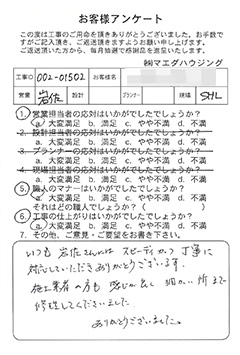 お客様アンケート
この度は工事のご用命を頂きありがとうございました。お手数で
すがご記入頂き、ご返送頂きますようお願い申し上げます。
ご返送頂いた方から、毎月抽選で感謝品を進呈いたします。
㈱マエダハウジング
工事ID 002-01502 お客様名
営業 岩佐 設計 プランナー 現場 SHL
1. 営業担当者の応対はいかがでしたでしょうか?
a. 大変満足 b. 満足 c. やや不満 d. 不満
2. 設計担当者の応対はいかがでしたでしょうか?
a. 大変満足 b. 満足 c. やや不満 d. 不満
3. プランナーの応対はいかがでしたでしょうか?
a. 大変満足 b. 満足 c. やや不満 d. 不満
4. 現場担当者の応対はいかがでしたでしょうか?
a. 大変満足 b. 満足 c. やや不満 d. 不満
5. 職人のマナーはいかがでしたでしょうか?
a. 大変満足 b. 満足 c. やや不満 d. 不満
それはどの職人でしょうか?( )
6. 工事の仕上がりはいかがでしたでしょうか?
a. 大変満足 b. 満足 c. やや不満 d. 不満
7. その他、ご意見・ご要望をお書き下さい。
いつも岩佐さんには スピーディかつ丁寧に
対応していただきありがとうございます。
施工業者の方も 感じが良く 細かい所まで
修理してくださいました。
ありがとうございました。